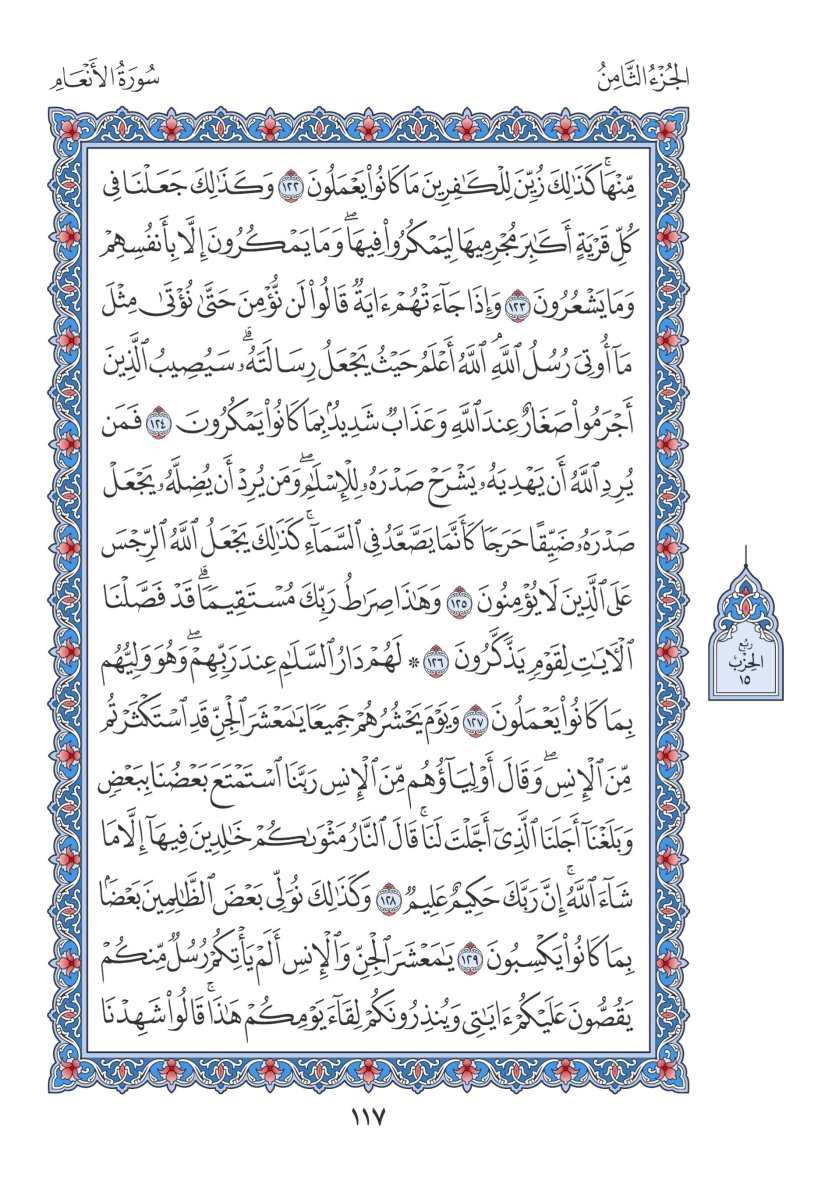 الجُزْءُ الثَّامِنُ
سُورَةُ الأَنْعَامِ
مِّنْهَاۚ كَذَٰلِكَ زُيِّنَ لِلْكَٰفِرِينَ مَا كَانُوا۟ يَعْمَلُونَ ١٢٢ وَكَذَٰلِكَ جَعَلْنَا فِى
كُلِّ قَرْيَةٍ أَكَٰبِرَ مُجْرِمِيهَا لِيَمْكُرُوا۟ فِيهَاۖ وَمَا يَمْكُرُونَ إِلَّا بِأَنفُسِهِمْ
وَمَا يَشْعُرُونَ ١٢٣ وَإِذَا جَآءَتْهُمْ ءَايَةٌ قَالُوا۟ لَن نُّؤْمِنَ حَتَّىٰ نُؤْتَىٰ مِثْلَ
مَآ أُوتِىَ رُسُلُ ٱللَّهِۘ ٱللَّهُ أَعْلَمُ حَيْثُ يَجْعَلُ رِسَالَتَهُۥۗ سَيُصِيبُ ٱلَّذِينَ
أَجْرَمُوا۟ صَغَارٌ عِندَ ٱللَّهِ وَعَذَابٌ شَدِيدٌۢ بِمَا كَانُوا۟ يَمْكُرُونَ ١٢٤ فَمَن
يُرِدِ ٱللَّهُ أَن يَهْدِيَهُۥ يَشْرَحْ صَدْرَهُۥ لِلْإِسْلَٰمِۖ وَمَن يُرِدْ أَن يُضِلَّهُۥ يَجْعَلْ
صَدْرَهُۥ ضَيِّقًا حَرَجًا كَأَنَّمَا يَصَّعَّدُ فِى ٱلسَّمَآءِۚ كَذَٰلِكَ يَجْعَلُ ٱللَّهُ ٱلرِّجْسَ
عَلَى ٱلَّذِينَ لَا يُؤْمِنُونَ ١٢٥ وَهَٰذَا صِرَٰطُ رَبِّكَ مُسْتَقِيمًاۗ قَدْ فَصَّلْنَا
ٱلْءَايَٰتِ لِقَوْمٍ يَذَّكَّرُونَ ١٢٦ ۞ لَهُمْ دَارُ ٱلسَّلَٰمِ عِندَ رَبِّهِمْۖ وَهُوَ وَلِيُّهُم
بِمَا كَانُوا۟ يَعْمَلُونَ ١٢٧ وَيَوْمَ يَحْشُرُهُمْ جَمِيعًا يَٰمَعْشَرَ ٱلْجِنِّ قَدِ ٱسْتَكْثَرْتُم
مِّنَ ٱلْإِنسِۖ وَقَالَ أَوْلِيَآؤُهُم مِّنَ ٱلْإِنسِ رَبَّنَا ٱسْتَمْتَعَ بَعْضُنَا بِبَعْضٍ
وَبَلَغْنَآ أَجَلَنَا ٱلَّذِىٓ أَجَّلْتَ لَنَاۚ قَالَ ٱلنَّارُ مَثْوَىٰكُمْ خَٰلِدِينَ فِيهَآ إِلَّا مَا
شَآءَ ٱللَّهُۚ إِنَّ رَبَّكَ حَكِيمٌ عَلِيمٌ ١٢٨ وَكَذَٰلِكَ نُوَلِّى بَعْضَ ٱلظَّٰلِمِينَ بَعْضًۢا
بِمَا كَانُوا۟ يَكْسِبُونَ ١٢٩ يَٰمَعْشَرَ ٱلْجِنِّ وَٱلْإِنسِ أَلَمْ يَأْتِكُمْ رُسُلٌ مِّنكُمْ
يَقُصُّونَ عَلَيْكُمْ ءَايَٰتِى وَيُنذِرُونَكُمْ لِقَآءَ يَوْمِكُمْ هَٰذَاۚ قَالُوا۟ شَهِدْنَا
رُبُع
الحِزْب
١٥
١١٧